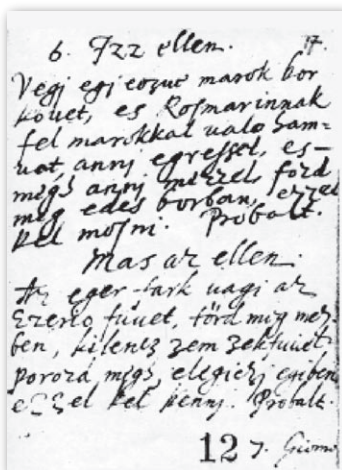 6. Izz ellen. 17.
Vegj egj eozue marok bor
kouet, es Rosmarinnak
fel marokkal ualo ham=
uat, annj egressel, es-
megs annj mezzel, förd
meg edes borban, ezzel
kel mosni. Probalt.
Mas az ellen.
Az eger-fark uagi az
Ezerio fuuet, törd mig mez-
ben, kilencz zem zekfuuet
poroza megs, elegiczj egiben
ezzel kel kennj. Probalt.
12 7. Giomo